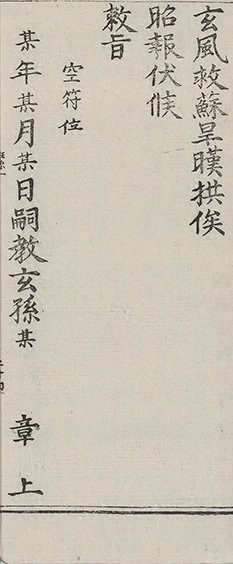 玄風救蘇旱暵拱俟
昭報伏候
敕旨
空符位
某年某月某日嗣教玄孫某 章上